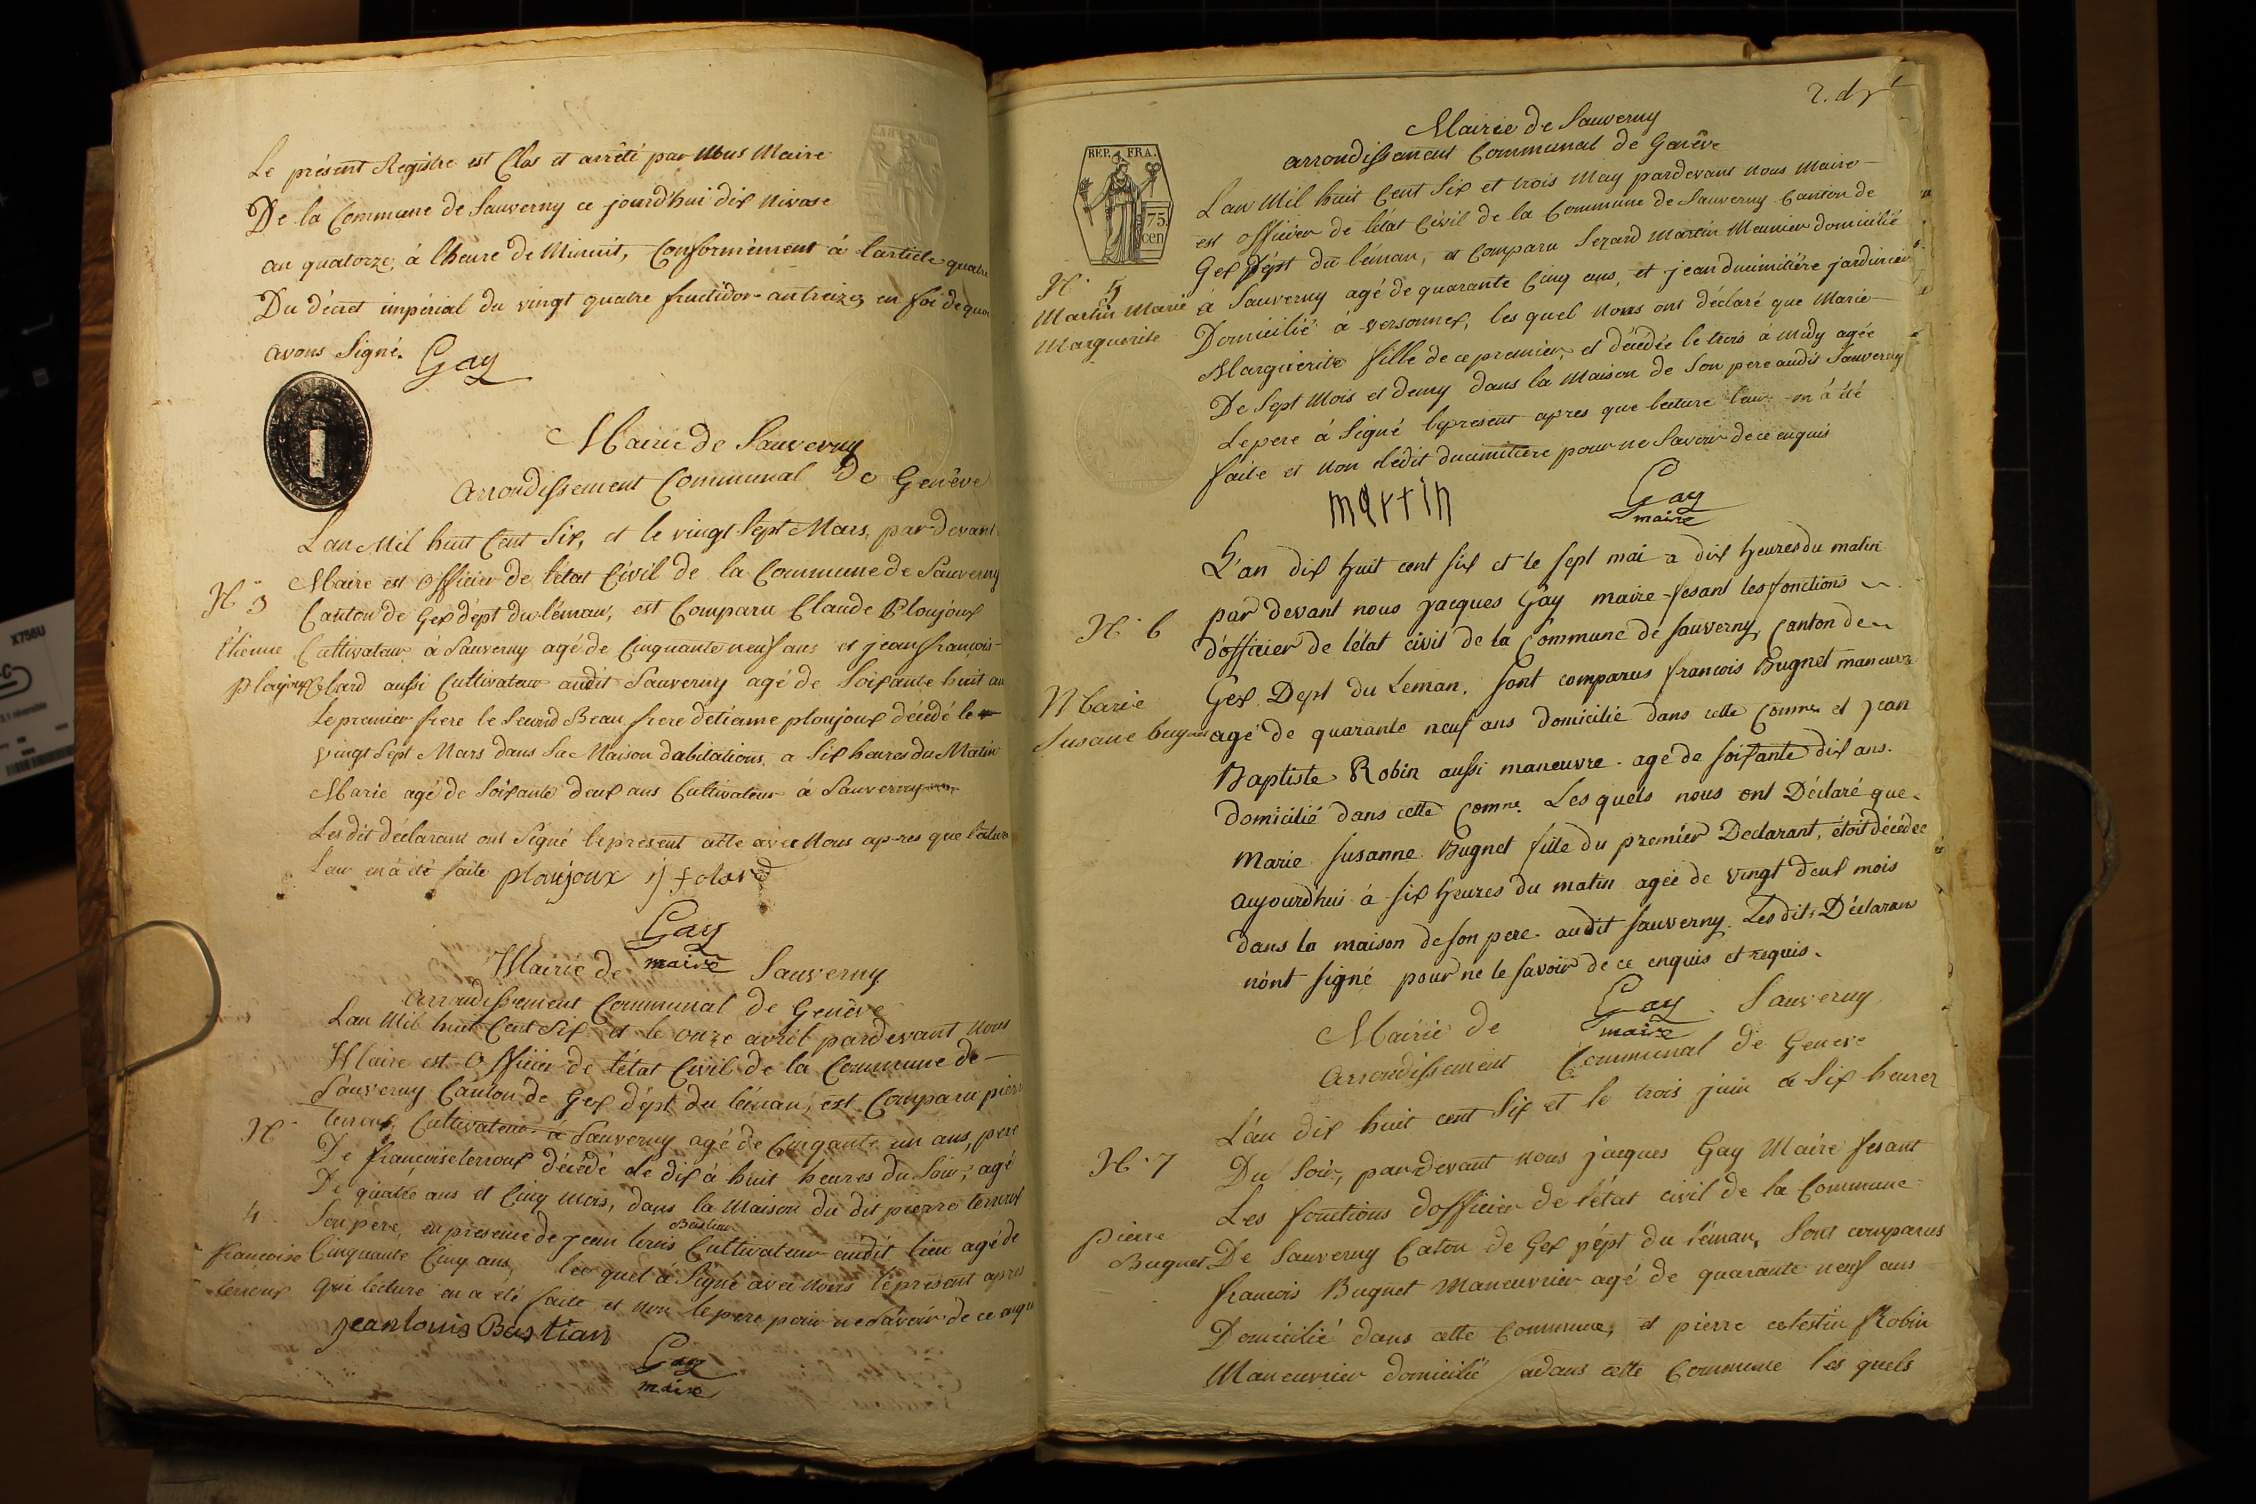 Le présent Registre est Clos et arrêté par Nous Maire
De la Commune de Sauverny ce jourd'hui dix Nivose
an quatorze, à l'heure de Minuit, Conformément à l'article quatre
Du décret impérial du vingt quatre fructidor an treize, en foi de quoi
avons Signé. Gay
Mairie de Sauverny
Arrondissement Communal De Genêve
L'an Mil huit Cent Six, et le vingt Sept Mars, par devant
Maire est Officier de l'état Civil de la Commune de Sauverny
N° 3
Canton de Gex dépt du léman, est Comparu Claude Ploujoux
Etienne
Cultivateur à Sauverny agé de Cinquante neuf ans et jean francois
Ploujoux
Clard aussi Cultivateur audit Sauverny agé de Soixante huit an
Le premier frere le Second Beau frere detienne ploujoux décédé le
vingt Sept Mars dans Sa Maison dabitations a Six heures du Matin
Marié agé de Soixante deux ans Cultivateur à Sauverny
Les dit déclarant ont Signé le present acte avec Nous apres que lecture
Leur en à été faite ploujoux
Gay
maire
Mairie de Sauverny
Arrondissement Communal de Genêve
L'an Mil huit Cent Six et le onze avril pardevant Nous
Maire est Officier de l'état Civil de la Commune de
Sauverny Canton de Gex dépt du léman, est Comparu pierre
N°
terroux Cultivateur à Sauverny agé de Cinqante un ans, pere
De françoise terroux décédé le dix à huit heures du Soir, agé
De quatre ans et Cinq Mois, dans la Maison du dit pierre terroux
4
Son père, en presence de jean louis Bastian Cultivateur audit lieu agé de
françoise
Cinquante Cinq ans, lee quel à Signé avec Nous le présent apres
terroux
que lecture en a été faite et non le pere pour ne Savoir de ce enquis
jean louis Bastian
Gay
maire
2. d
Mairie de Sauverny
arrondissement Communal de Genêve
REP. FRA.
75 cen
L'an Mil huit Cent Six et trois May pardevant nous Maire
est officier de l'état Civil de la Commune de Sauverny Canton de
Gex dépt du léman, est Comparu Sezard Martin Meunier domicilié
N° 5
à Sauverny agé de quarante Cinq ans, et jean ducimitière jardinier
Martin Marie
Domicilié à versonnex, les quel Nous ont déclaré que Marie
Marguerite
Marguerite fille de ce premier, et décédée le trois à Midy agée
De Sept Mois et demy dans la Maison de Son pere audit Sauverny
Le pere à Signé le present apres que lecture leur en à été
faite et Non ledit ducimitiere pour ne Savoir de ce enquis
martin
Gay
maire
L'an dix huit cent six et le sept mai a dix heures du matin
par devant nous jacques Gay maire fesant les fonctions
N° 6
d'officier de l'état civil de la Commune de sauverny, canton de
Gex Dept du Leman. sont comparus francois Bugnet maneuvre
Marie
Susane bugnet
agé de quarante neuf ans domicilié dans cette comne et jean
Baptiste Robin aussi maneuvre. age de soixante dix ans.
domicilié dans cette comne. Les quels nous ont Déclaré que
Marie Susanne Bugnet fille du premier Declarant, étoit décédée
aujourd'hui à six heures du matin agée de vingt deux mois
dans la maison de son pere audit sauverny. Les dits Déclarans
n'ont signé pour ne le savoir de ce enquis et requis.
Gay
maire
Mairie de Sauverny
Arrondissement Communal de Geneve
L'an dix huit cent Six et le trois juin a Six heures
N° 7
Du Soir, pardevant nous jacques Gay Maire fesant
Les fonctions d'officier de l'état civil de la Commune
pierre
Bugnet
De Sauverny Caton de Gex dépt du léman, Sont comparus
francois Bugnet Maneuvrier agé de quarante neuf ans
Domicilié dans cette Commune, et pierre celestin Robin
Maneuvrier domicilié adans cette Commune les quels